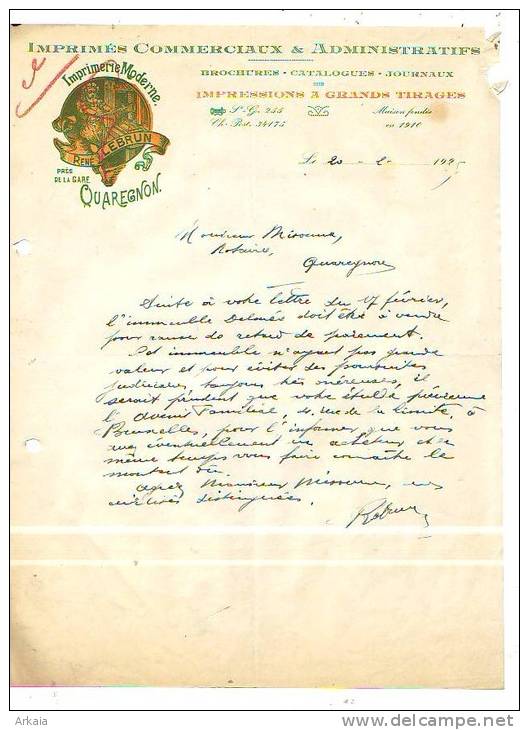 Imprimés Commerciaux & Administratifs
Brochures - Catalogues - Journaux
Impressions a Grands Tirages
Imprimerie Moderne
René Lebrun
St-G. 255
Ch. Post. 34175
Maison fondée
en 1910
près
de la gare
Quaregnon.
Le 20 - 2 - 19
Monsieur
Notaire,
Quaregnon
Suite à votre lettre du 17 février,
l'immeuble Delmée doit être à vendre
pour cause de retard de paiement.
Cet immeuble n'ayant pas grande
valeur et pour éviter des poursuites
judiciaires, toujours très onéreuses, il
serait prudent que votre étude prévienne
l'Avenir Familial, 4, rue de la Limite, à
Bruxelles, pour l'informer que vous
avez éventuellement un acheteur et en
même temps vous faire connaître le
montant dû.
Agréez Monsieur mes
civilités distinguées.
Lebrun
Arkaia
delcampe.net